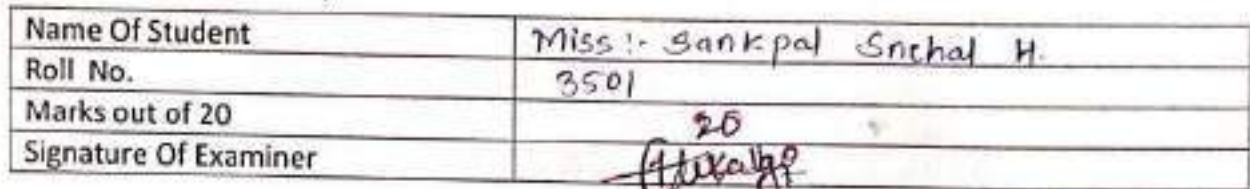 Name Of Student Miss :- Sankpal Snehal H.
Roll No. 3501
Marks out of 20 20
Signature Of Examiner